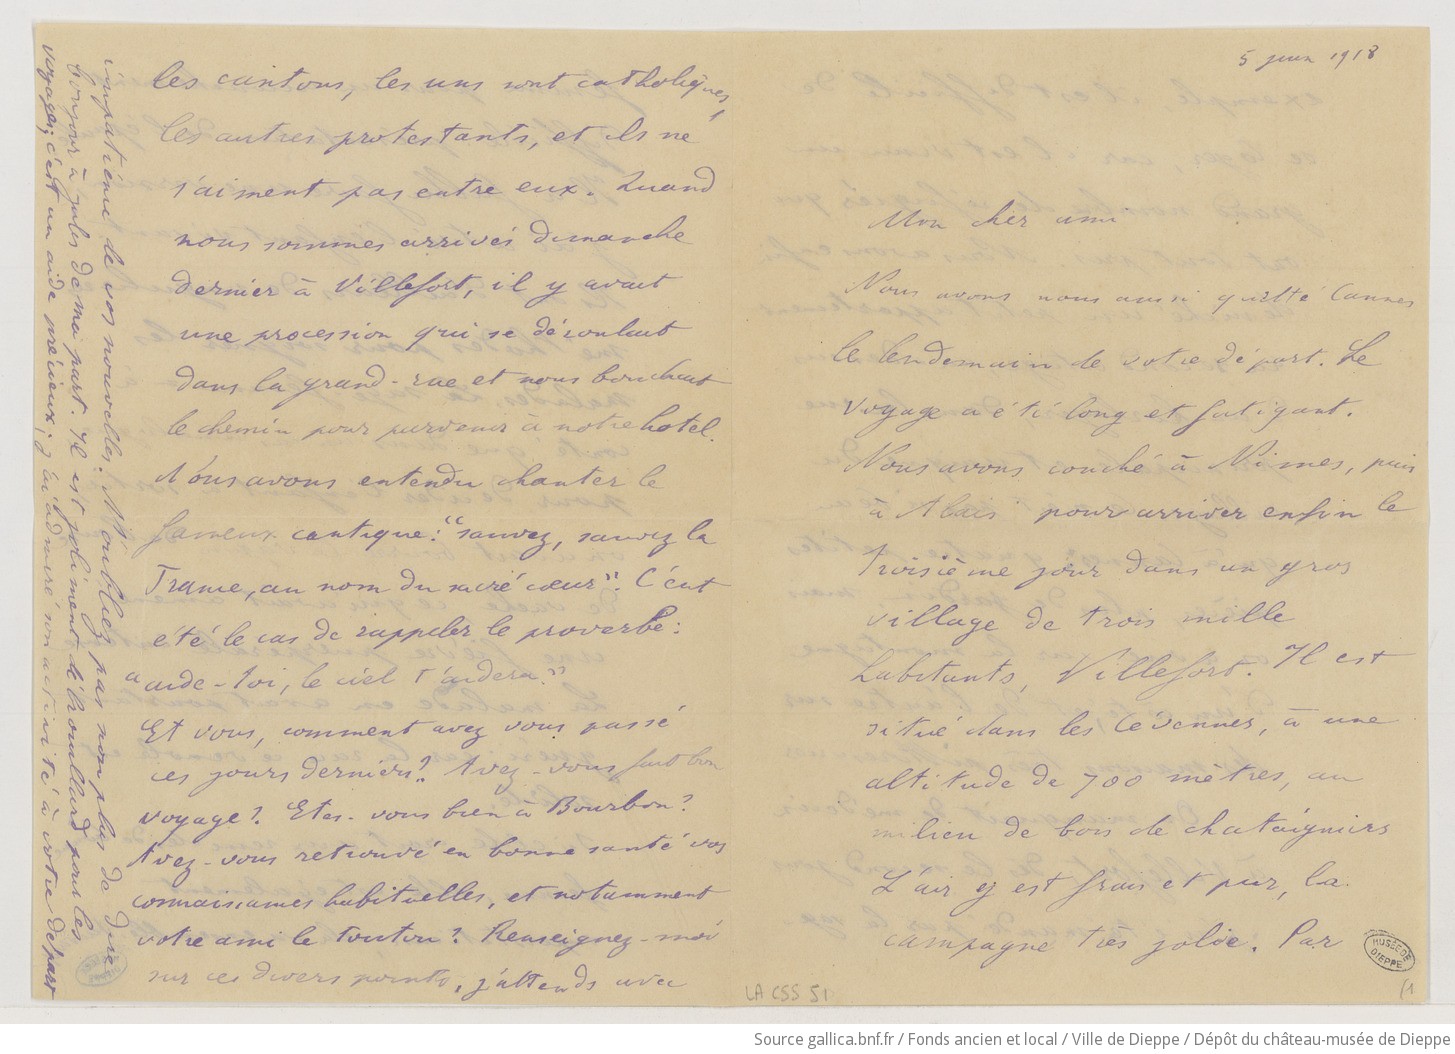 5 juin 1918
Mon cher ami
Nous avons nous aussi quitté Cannes
le lendemain de votre départ. Le
voyage a été long et fatigant.
Nous avons couché à Nîmes, puis
à Alais pour arriver enfin le
troisième jour dans un gros
village de trois mille
habitants, Villefort. Il est
situé dans les Cévennes, à une
altitude de 700 mètres, au
milieu de bois de chataigniers
L'air y est frais et pur, la
campagne très jolie. Par
MUSÉE DE
DIEPPE
LA CSS 51
les cantons, les uns sont catholiques,
les autres protestants, et ils ne
s'aiment pas entre eux. Quand
nous sommes arrivés dimanche
dernier à Villefort, il y avait
une procession qui se déroulait
dans la grand-rue et nous bouchait
le chemin pour parvenir à notre hotel.
Nous avons entendu chanter le
fameux cantique: "sauvez, sauvez la
France, au nom du sacré cœur". C'eut
été le cas de rappeler le proverbe:
"aide-toi, le ciel t'aidera."
Et vous, comment avez vous passé
ces jours derniers? Avez-vous fait bon
voyage? Etes-vous bien à Bourbon?
Avez-vous retrouvé en bonne santé vos
connaissances habituelles, et notamment
votre ami le toutou? Renseignez-moi
sur ces divers points, j'attends avec
impatience de vos nouvelles. N'oubliez pas non plus de dire
bonjour à Jules de ma part. Il est joliment débrouillard pour les
voyages; c'est un aide précieux; j'ai admiré son activité à votre départ
Source gallica.bnf.fr / Fonds ancien et local / Ville de Dieppe / Dépôt du château-musée de Dieppe